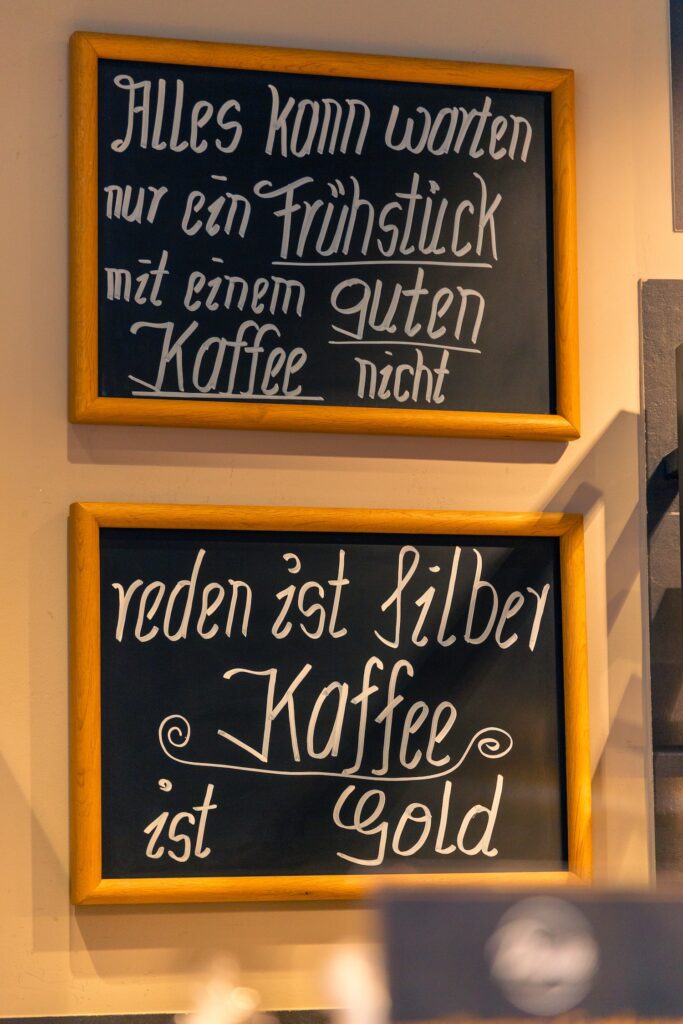 Alles kann warten
nur ein Frühstück
mit einem guten
Kaffee nicht
reden ist Silber
Kaffee
ist Gold